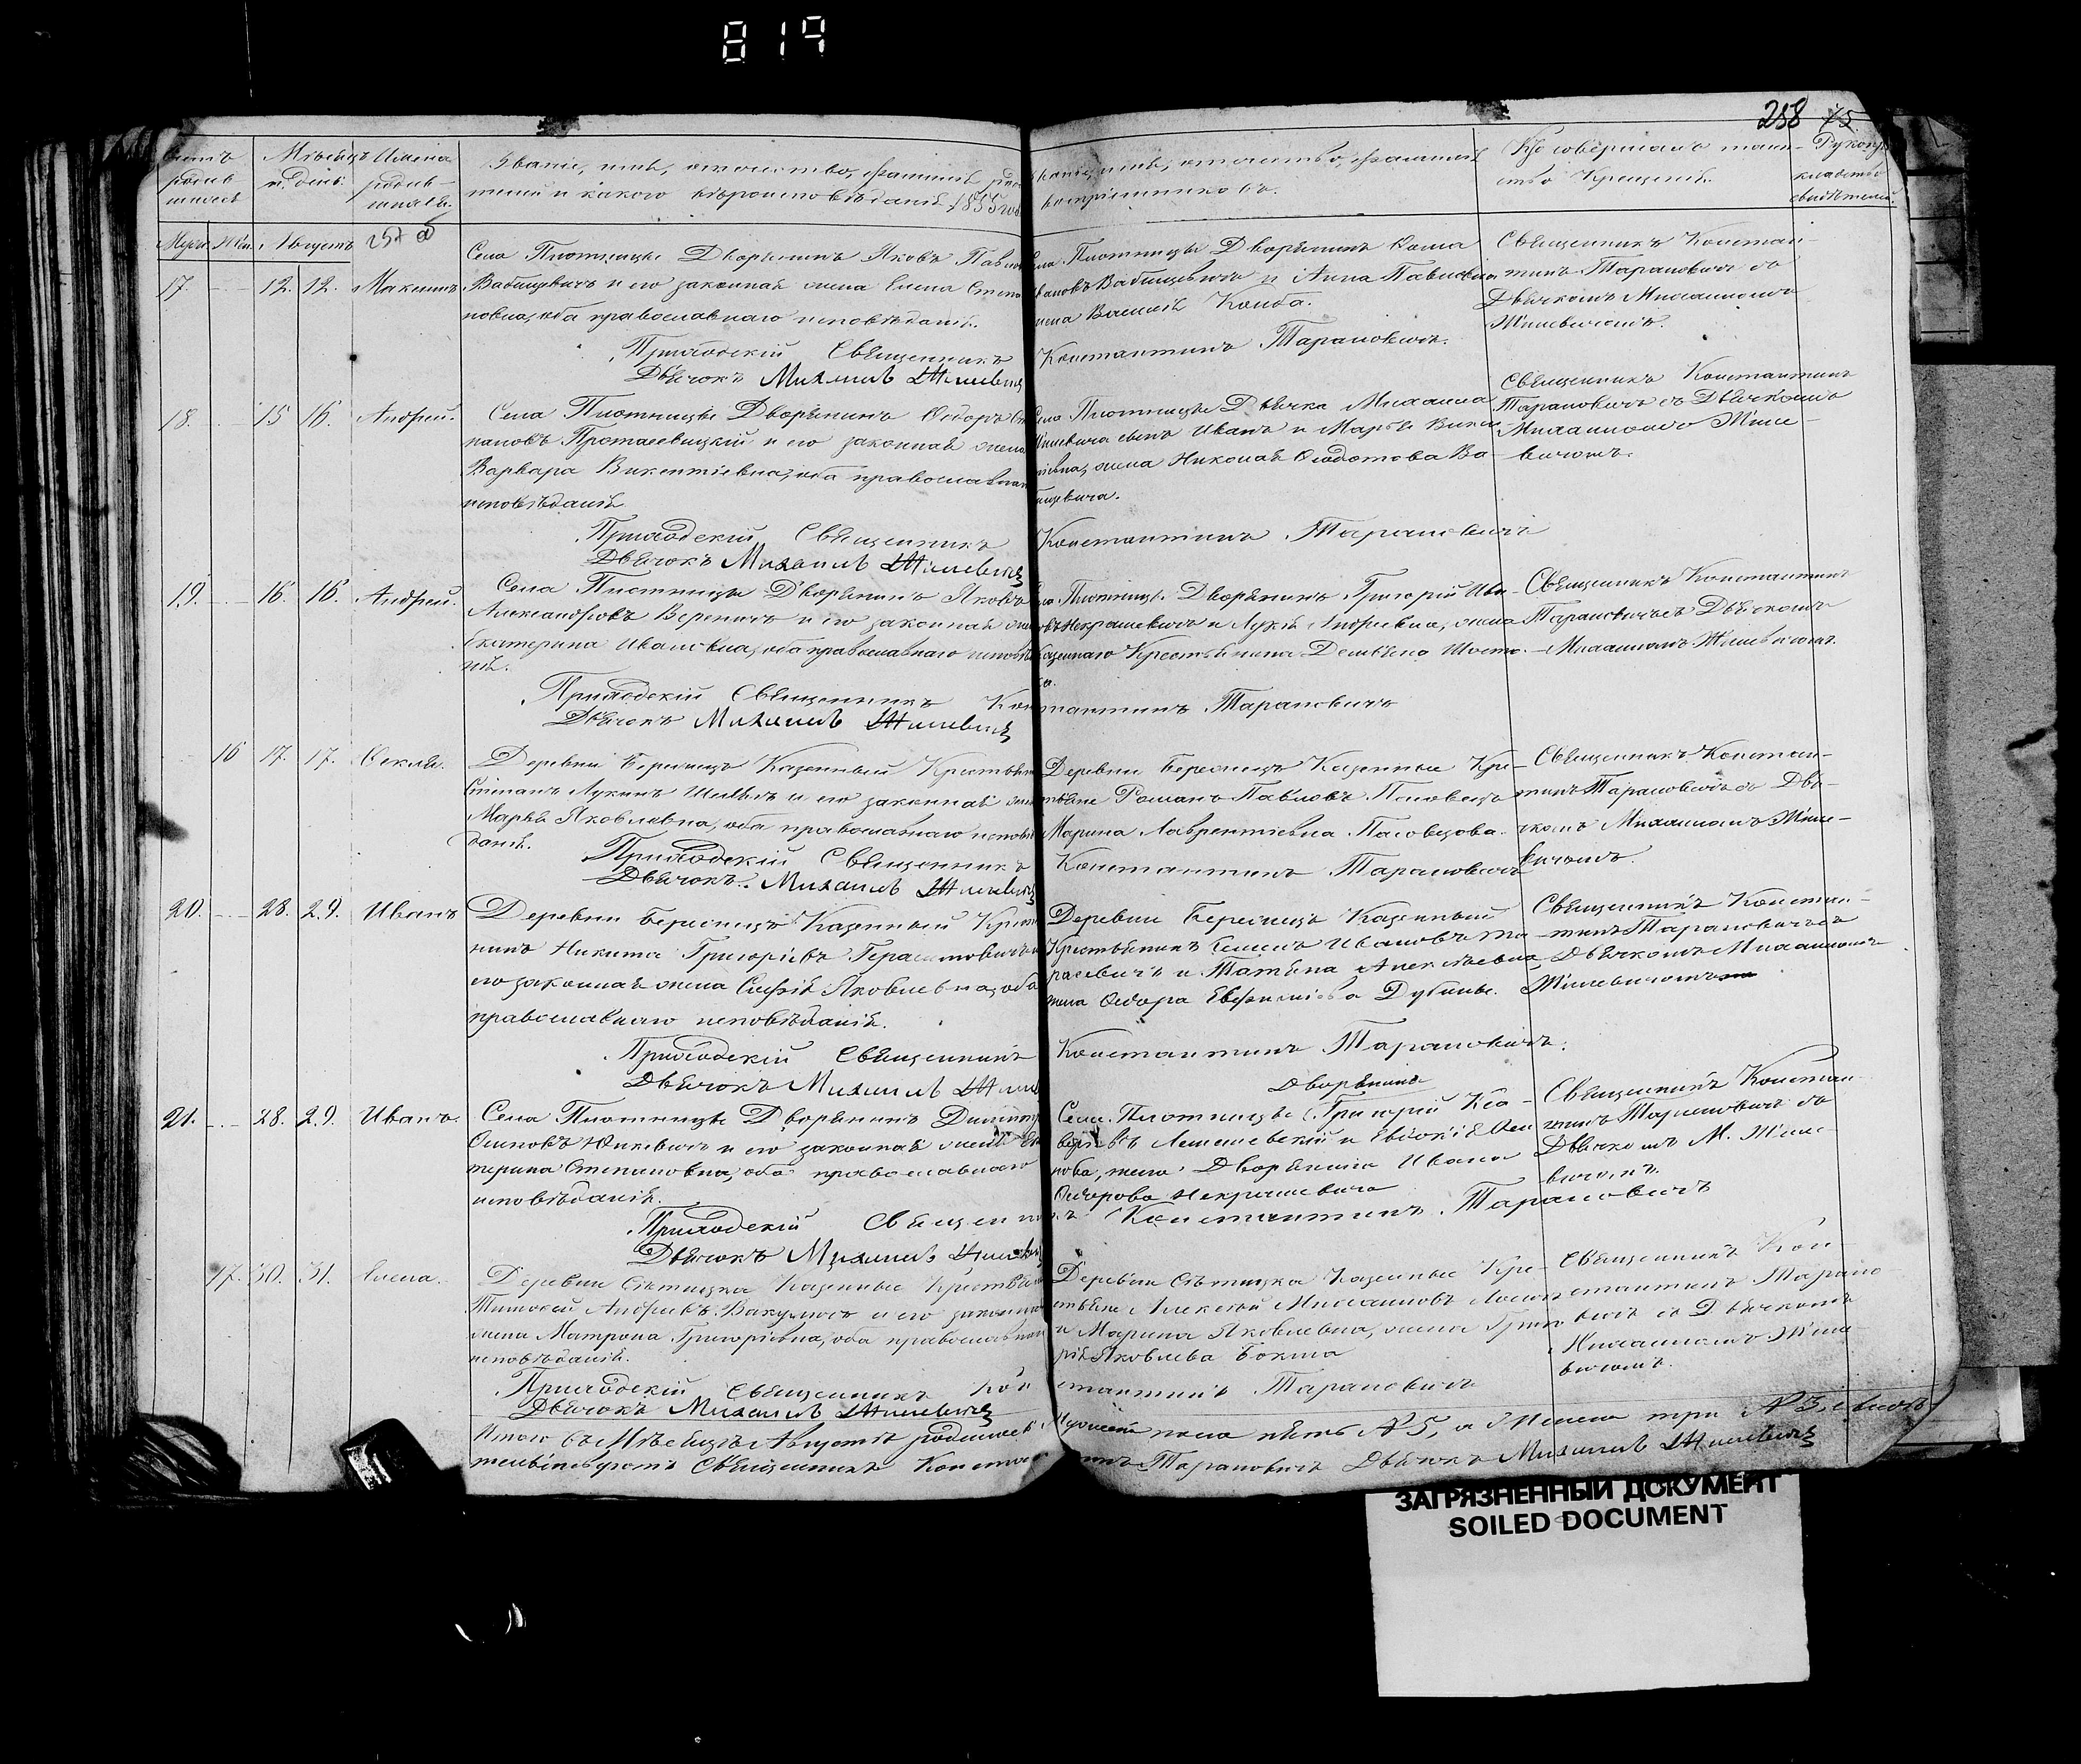 819
258 75
Счетъ родив шихся
Мѣсяцъ и день.
Имена родив шихся.
Званіе, имя, отчество, фамилія роди
телей и какого вѣроисповѣданія. 1855 год
Званіе, имя, отчество, фамилія
воспріемниковъ.
Кто совершалъ таин-
ство Крещенія.
Рукопри
кладство
свидѣтелей.
Муж. Жен. Августъ
17. 12. 12. Максимъ
Села Плотницы Дворянинъ Яковъ Павло
Вабищевичъ и его законная жена Елена Степа
новна, оба православнаго исповѣданія.
Приходскій Священникъ
Дьячокъ Михаилъ Жилевичъ
Села Плотницы Дворянинъ Ѳома
Ивановъ Вабищевичъ и Анна Павловна
жена Василія Конба.
Константинъ Тарановичъ.
Священникъ Констан-
тинъ Тарановичъ съ
Дьячкомъ Михаиломъ
Жилевичемъ.
18. 15 16. Андрей.
Села Плотницы Дворянинъ Ѳедоръ Сте
пановъ Протасевицкій и его законная жена
Варвара Викентіевна, оба православнаго
исповѣданія
Приходскій Священникъ
Дьячокъ Михаилъ Жилевичъ
Села Плотницы Дьячка Михаила
Жилевича сынъ Иванъ и Марья Викен
тіевна, жена Николая Ѳеодотова Ва-
бищевича.
Константинъ Тарановичъ
Священникъ Константинъ
Тарановичъ съ Дьячкомъ
Михаиломъ Жиле-
вичемъ.
19. 16. 16. Андрей.
Села Плотницы Дворянинъ Яковъ
Александровъ Вереничъ и его законная жена
Екатерина Ивановна, оба православнаго исповѣда
нія.
Приходскій Священникъ Кон
Дьячокъ Михаилъ Жилевичъ
Села Плотницы Дворянинъ Григорій Ива-
новъ Некрашевичъ и Лукія Андреевна, жена
Казеннаго Крестьянина Демьяна Шоста-
ка.
стантинъ Тарановичъ
Священникъ Константинъ
Тарановичъ съ Дьячкомъ
Михаиломъ Жилевичемъ.
16 17. 17. Ѳекла.
Деревни Бересницъ Казенный Крестьян
Степанъ Лукинъ и его законная жена
Марья Яковлевна, оба православнаго исповѣ
данія.
Приходскій Священникъ
Дьячокъ. Михаилъ Жилевичъ
Деревни Бересницъ Казенные Кре-
стьяне Романъ Павловъ Пасовецъ
Марина Лаврентіевна Пасовцова.
Константинъ Тарановичъ
Священникъ Констан-
тинъ Тарановичъ съ Дья-
чкомъ Михаиломъ Жиле-
вичемъ.
20. 28. 29. Иванъ
Деревни Бересницъ Казенный Крестья
нинъ Никита Григорьевъ Герасимовичъ и
его законная жена Софія Яковлевна, оба
православнаго исповѣданія.
Приходскій Священникъ
Дьячокъ Михаилъ Жиле
Деревни Бересницъ Казенный
Крестьянинъ Семенъ Ивановъ Та-
расевичъ и Татьяна Алексѣевна
жена Ѳедора Евфиміева Дубины.
Константинъ Тарановичъ.
Священникъ Констан-
тинъ Тарановичъ съ
Дьячкомъ Михаиломъ
Жилевичемъ
21. 28. 29. Иванъ.
Села Плотницы Дворянинъ Димитр
Осиповъ Юцкевичъ и его законная жена Ека
терина Степановна, оба православнаго
исповѣданія.
Приходскій Священни
Дьячокъ Михаилъ Жилевичъ
Дворянинъ
Села Плотницы Григорій Кса-
верьевъ Лешневскій и Евдокія Оси
пова, жена Дворянина Ивана
Ѳедорова Некрашевича
къ Константинъ Тарановичъ
Священникъ Констан
тинъ Тарановичъ съ
Дьячкомъ М. Жиле-
вичемъ.
17. 30. 31. Елена.
Деревни Сѣтицка Казенные Крестьяне
Тимофей Андреевъ Вакуличъ и его законная
жена Матрона Григорьевна, оба православнаго
исповѣданія.
Приходскій Священникъ Кон
Дьячокъ Михаилъ Жилевичъ
Деревни Сѣтицка Казенные Кре-
стьяне Алексѣй Михаиловъ
и Марина Яковлевна, жена Григо
рія Яковлева Бокша
стантинъ Тарановичъ
Священникъ Кон-
стантинъ Тарано-
вичъ съ Дьячкомъ
Михаиломъ Жиле-
вичемъ.
Итого въ Мѣсяцѣ Августѣ родилось Мужеска пола пять № 5, а Женска три № 3,
Священникъ Константинъ Тарановичъ Дьячокъ Михаилъ Жилевичъ
ЗАГРЯЗНЕННЫЙ ДОКУМЕНТ
SOILED DOCUMENT